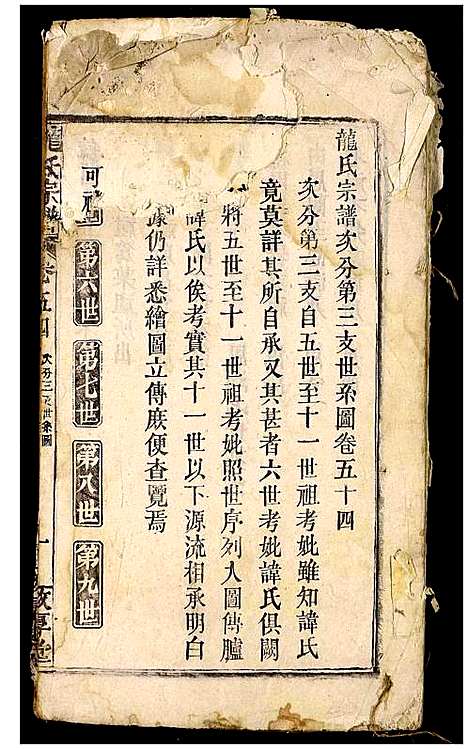 龍氏宗譜次分第三支世系圖卷五十四
次分第三支自五世至十一世祖考妣雖知諱氏
竟莫詳其所自承又其甚者六世考妣諱氏俱闕
將五世至十一世祖考妣照世序列入圖傳臚
諱氏以俟考實其十一世以下源流相承明白
據仍詳悉繪圖立傳庶便查覽焉
可 第六世 第七世 第八世 第九世
龍氏宗譜 卷五四 次分三支世系圖 一 敦厚堂